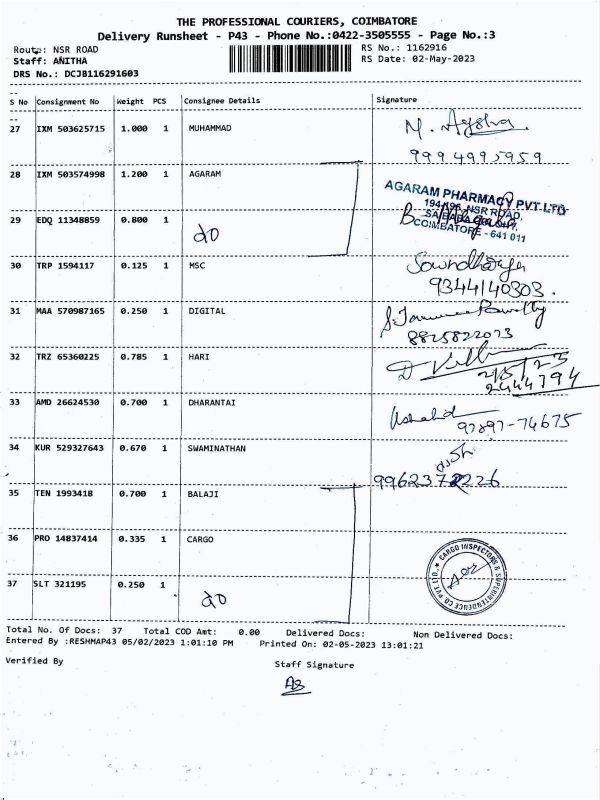 THE PROFESSIONAL COURIERS, COIMBATORE
Delivery Runsheet - P43 - Phone No.:0422-3505555 - Page No.:3
Route: NSR ROAD
RS No.: 1162916
Staff: ANITHA
RS Date: 02-May-2023
DRS No.: DCJB116291603
S No Consignment No Weight PCS Consignee Details Signature
27 IXM 503625715 1.000 1 MUHAMMAD M. Aysha
9994995959
28 IXM 503574998 1.200 1 AGARAM
AGARAM PHARMACY PVT.LTD
194/196, NSR ROAD,
COIMBATORE - 641 011
29 EDQ 11348859 0.800 1 do
30 TRP 1594117 0.125 1 MSC
9344140303.
31 MAA 570987165 0.250 1 DIGITAL
8825822073
32 TRZ 65360225 0.785 1 HARI
2/5/23
2444794
33 AMD 26624530 0.700 1 DHARANTAI
97897-74675
34 KUR 529327643 0.670 1 SWAMINATHAN
35 TEN 1993418 0.700 1 BALAJI
36 PRO 14837414 0.335 1 CARGO
CARGO INSPECTORS & SUPERINTENDENCE CO PVT LTD.
37 SLT 321195 0.250 1 do
Total No. Of Docs: 37 Total COD Amt: 0.00 Delivered Docs: Non Delivered Docs:
Entered By :RESHMAP43 05/02/2023 1:01:10 PM Printed On: 02-05-2023 13:01:21
Verified By
Staff Signature